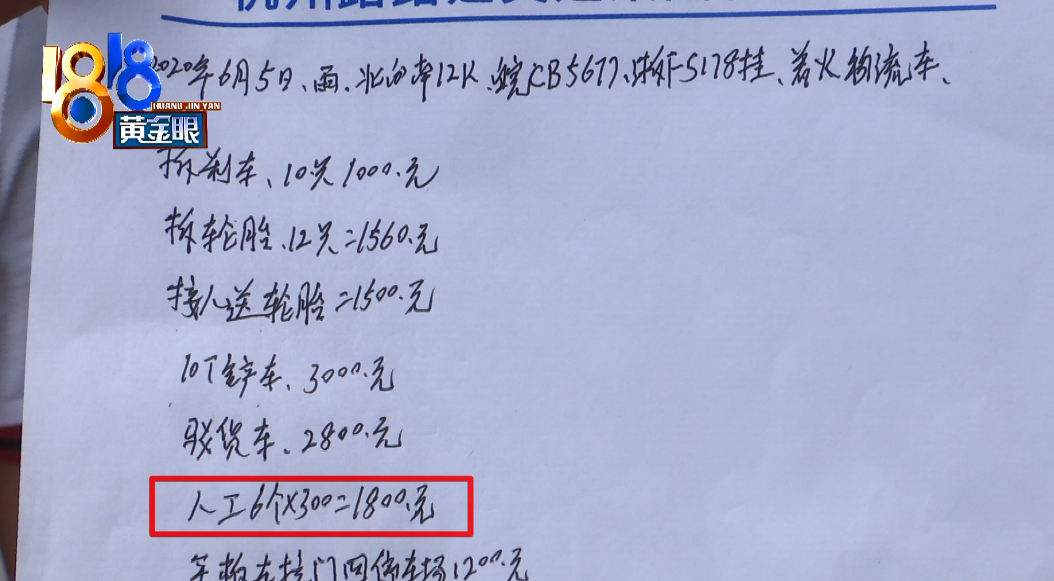 1818
HUANG JIN YAN
黄金眼
2020年6月5日、雨、北向南12K、皖CB5677、F5178挂、着火物流车、
拆刹车、10只1000.元
拆轮胎、12只=1560.元
接人送轮胎=1500.元
10T铲车、3000.元
驳货车、2800.元
人工6个X300=1800.元
平板车拉门回停车场1200元